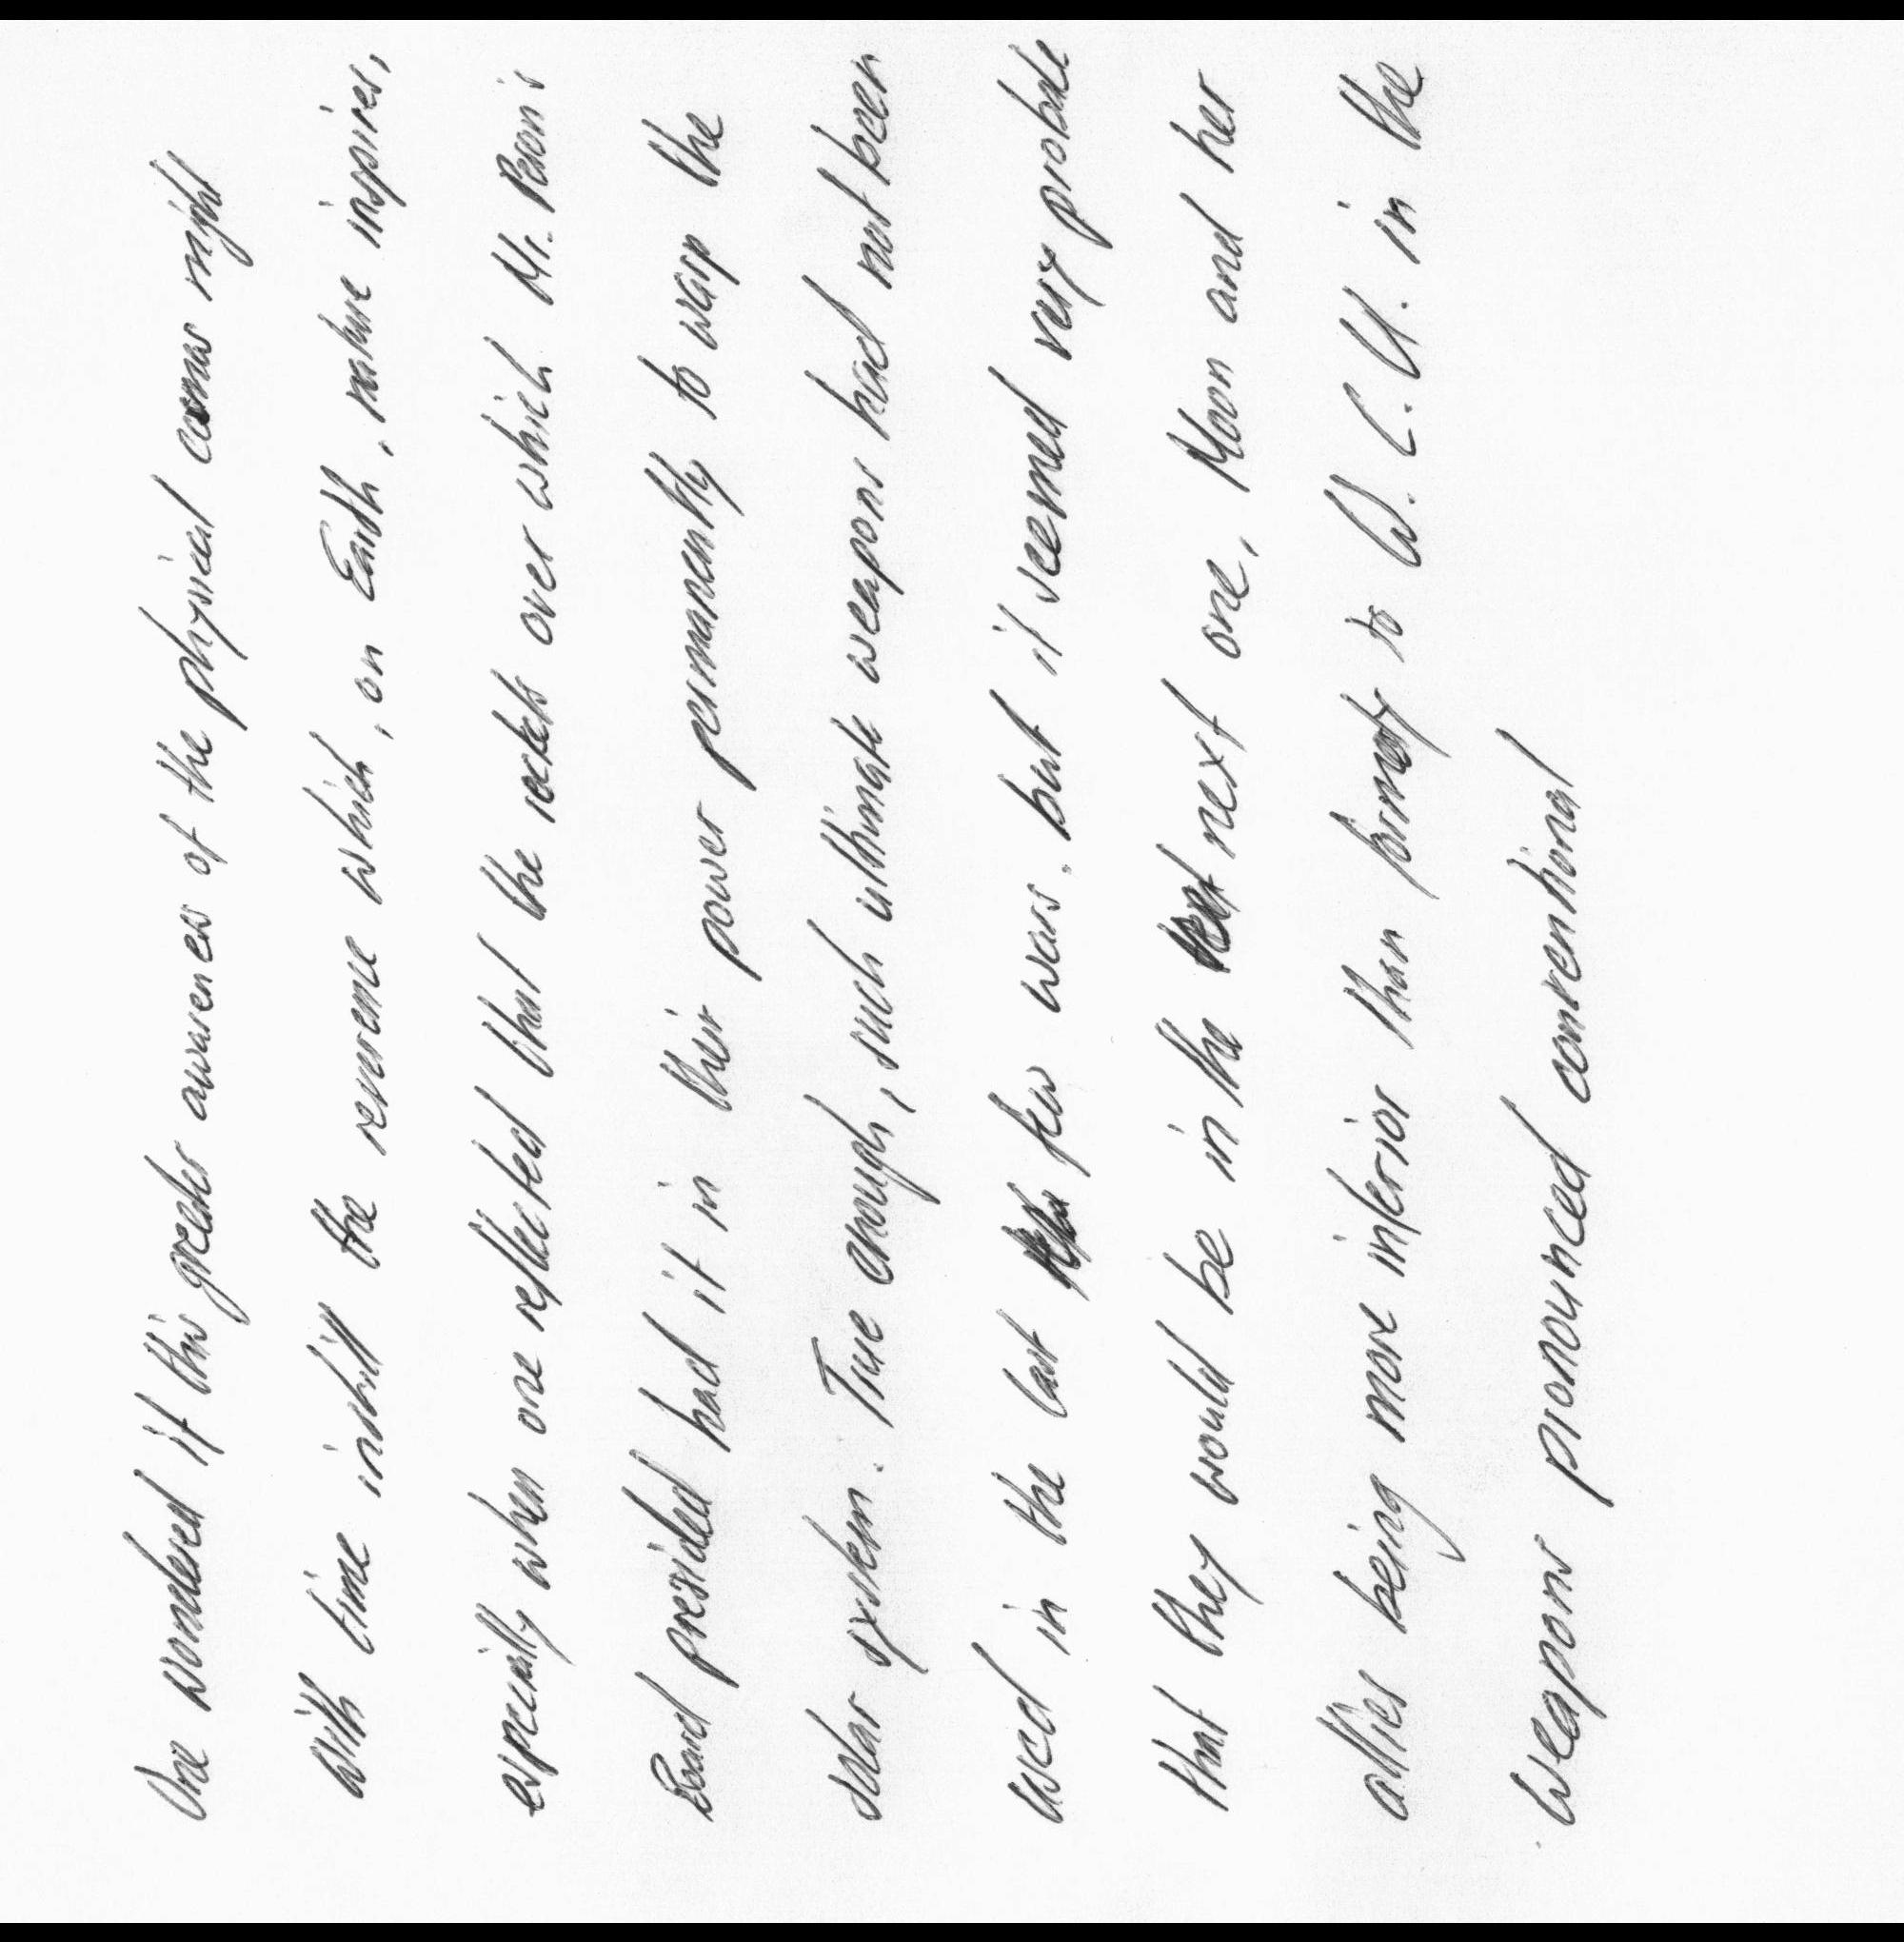 One wondered if this greater awareness of the physical cosmos might
with time instill the reverence which, on Earth, nature inspires,
especially when one reflected that the rockets over which Mr. Peson's
Board presided had it in their power permanently to warp the
solar system. True enough, such ultimate weapons had not been
used in the last few wars, but it seemed very probable
that they would be in the next one, Moon and her
allies being more inferior than formerly to W.C.U. in the
weapons pronounced conventional